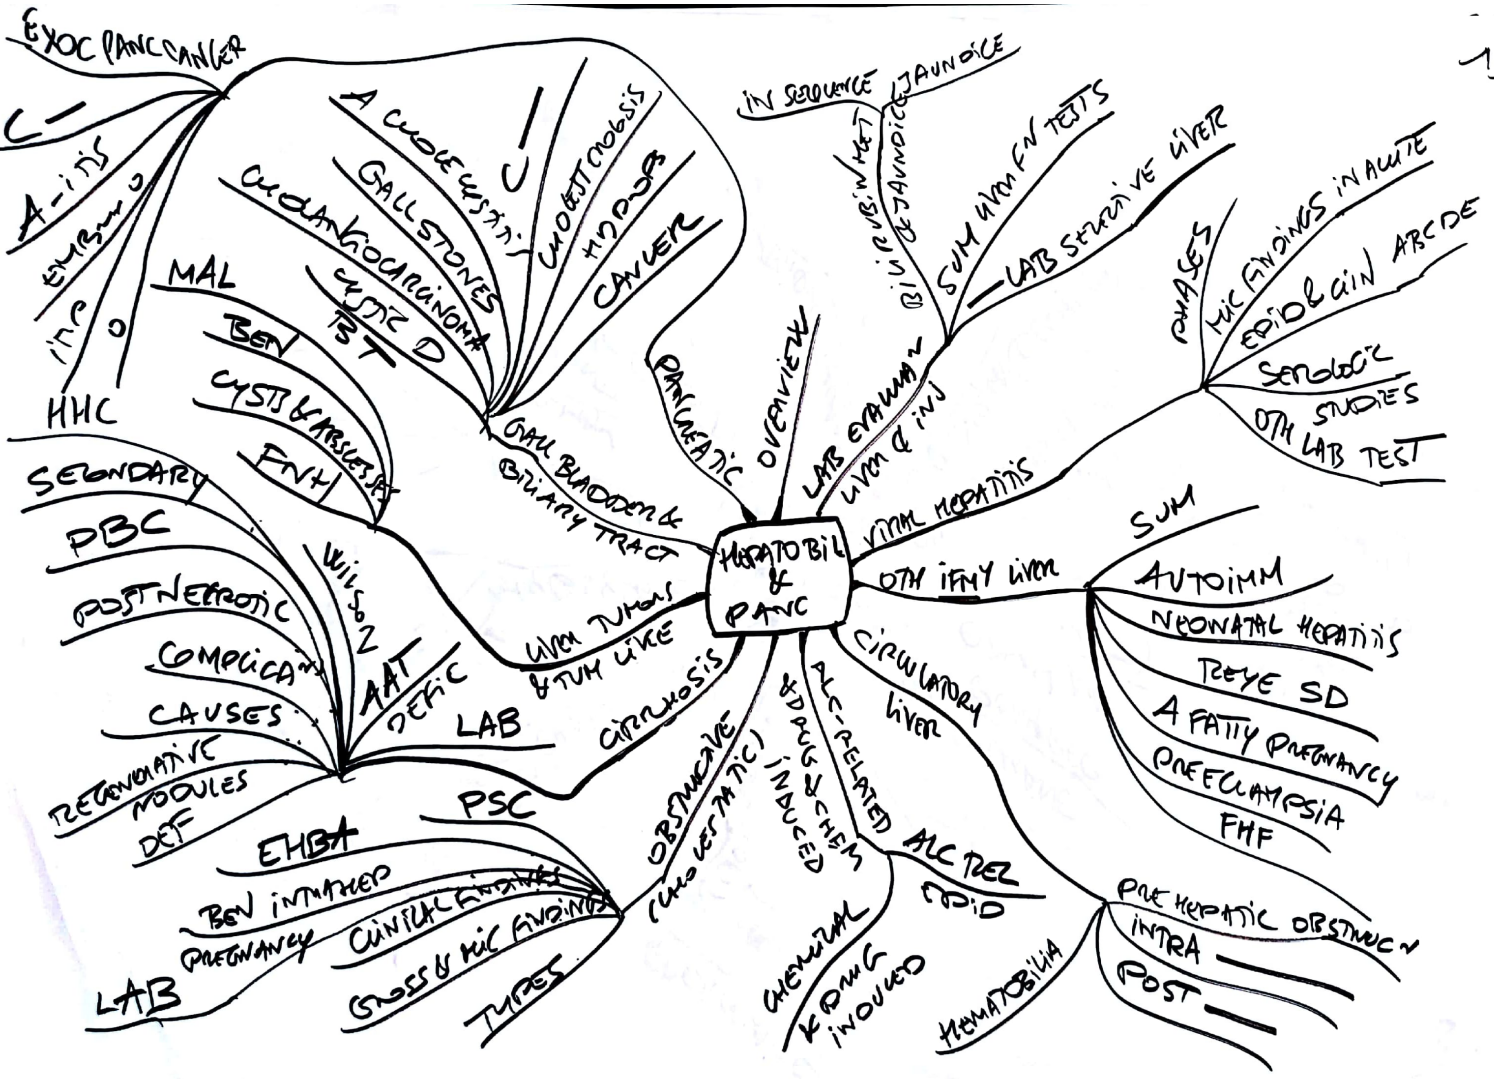 HEPATOBIL
&
PANC
OVERVIEW
LAB EVALUAN
LIVER & INJ
BILIRUBIN MET
& JAUNDICE
IN SEQUENCE
JAUNDICE
SUM LIVER FN TESTS
LAB SELECTIVE LIVER
VIRAL HEPATITIS
PHASES
MIC FINDINGS IN ACUTE
EPID & CLIN ABCDE
SEROLOGIC
STUDIES
OTH LAB TEST
OTH IFMY LIVER
SUM
AUTOIMM
NEONATAL HEPATITIS
REYE SD
A FATTY PREGNANCY
PREECLAMPSIA
FHF
CIRCULATORY
LIVER
PRE HEPATIC OBSTRUCN
INTRA
POST
HEMATOBILIA
ALC-RELATED
& DRUG & CHEM
INDUCED
ALC REL
EPID
CHEMICAL
& DRUG
INDUCED
OBSTRUCTIVE
(CHOLESTATIC)
PSC
EHBA
BEN INTRAHEP
PREGNANCY
CLINICAL FINDINGS
GROSS & MIC FINDINGS
TYPES
LAB
CIRRHOSIS
HHC
SECONDARY
PBC
POSTNECROTIC
COMPLICAN
CAUSES
REGENERATIVE
NODULES
DEF
WILSON
AAT
DEFIC
LAB
LIVER TUMORS
& TUM LIKE
MAL
BEN
CYSTS & ABSCESSES
FNH
GALL BLADDER &
BILIARY TRACT
CYSTIC D
BT
CHOLANGIOCARCINOMA
GALLSTONES
A CHOLECYSTITIS
C -
CHOLESTEROLOSIS
HYDROPS
CANCER
PANCREATIC
EXOC PANC CANCER
C -
A-ITIS